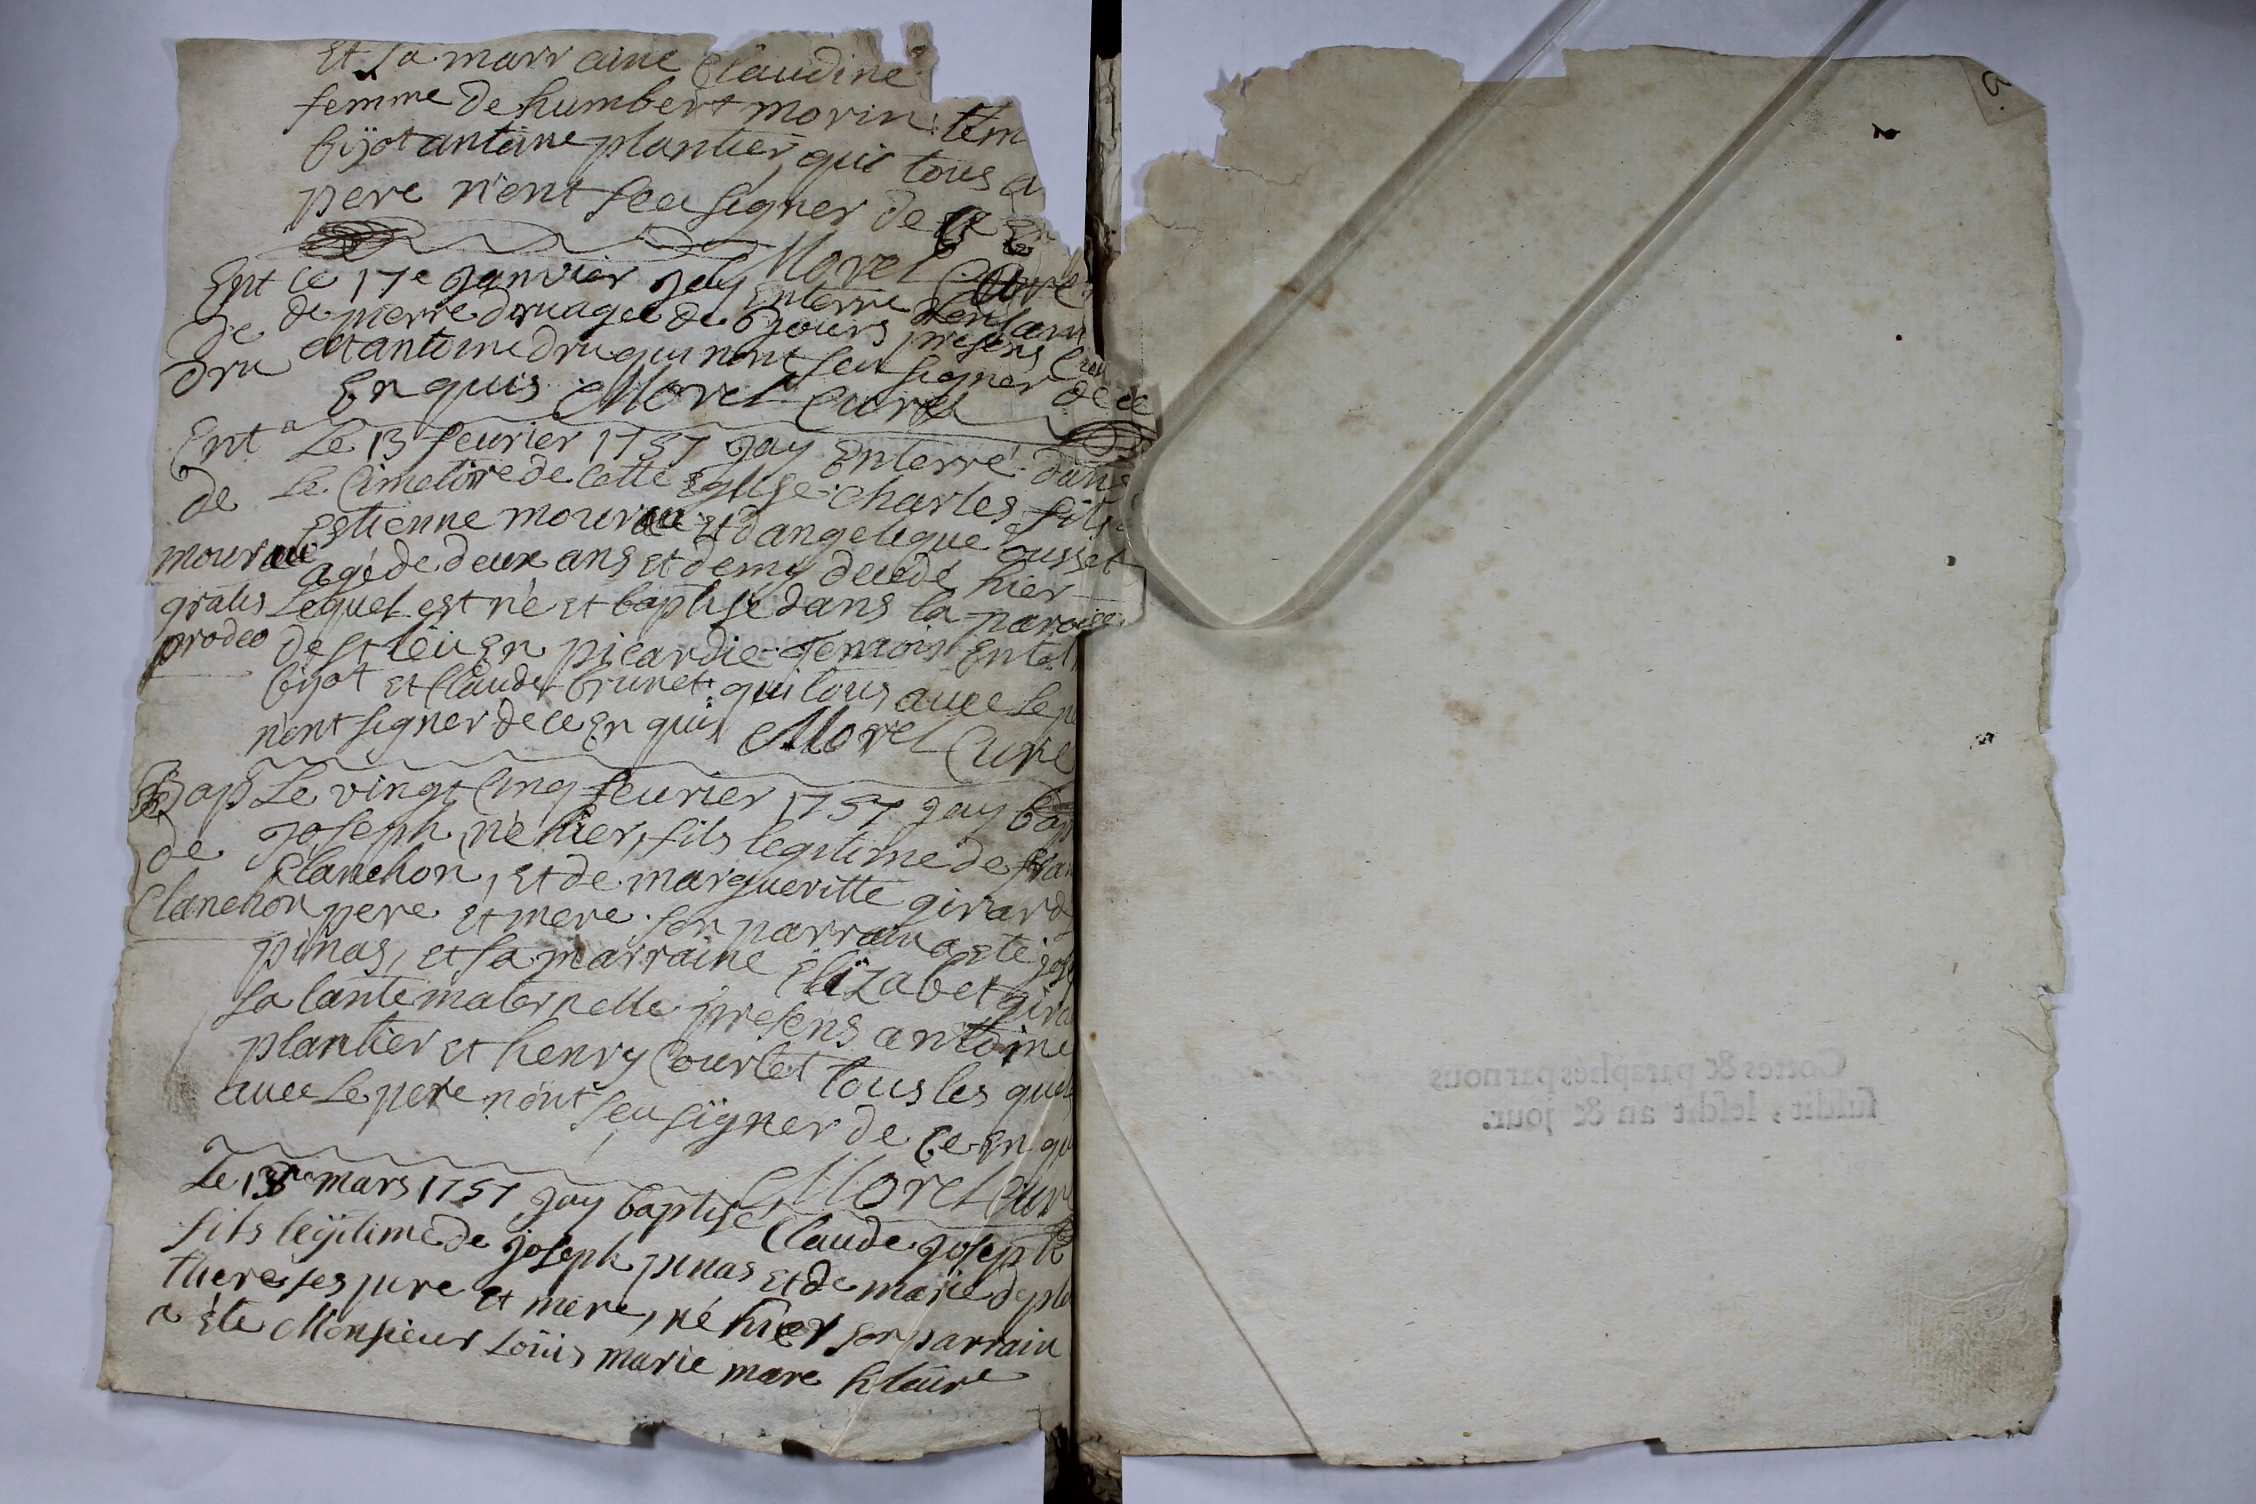 Et sa marraine Claudine
femme de humbert morin tem
bijot antoine plantier qui tous a
pere n'ent sceu signer de ce En
Morel Curé
Ent Le 17e janvier jay Enterre Lenfant
de de pierre dru agé de 6 jours presens
dru et antoine dru qui nont seu signer de ce
En quis Morel Curé
Ent Le 13 feurier 1757 jay Enterré dans
de Le Cimetiire de cette Eglise Charles fils
Estienne mourau Et dangelique ousset
mourau agé de deux ans et demy decedé hier
gratis Lequel est né et baptisé dans la paroisse
prodeo de st leu En picardie Temoins
bijot et Claude brunet qui tous avec le pe
n'ent signer de ce En quis Morel Curé
Bap Le vingt Cinq feurier 1757 jay bap
de joseph né hier, fils legitime de fran
Clanchon, Et de margueritte girard
Clanchon pere Et mere son parrain a Eté jose
pinas, et sa marraine Elizabet gira
sa tante maternelle presens antoine
plantier et henry Courtet tous les quel
avec Le pere nont seu signer de ce En qu
Morel Cur
Le 13 mars 1757 jay baptisé Claude joseph
fils legitime de joseph pinas et de marie depla
there ses pere et mere, né hier son parrain
a Eté Monsieur Loüis marie mare hilaire
a.
Cottes & paraphés par nous
susdit, lesdit an & jour.